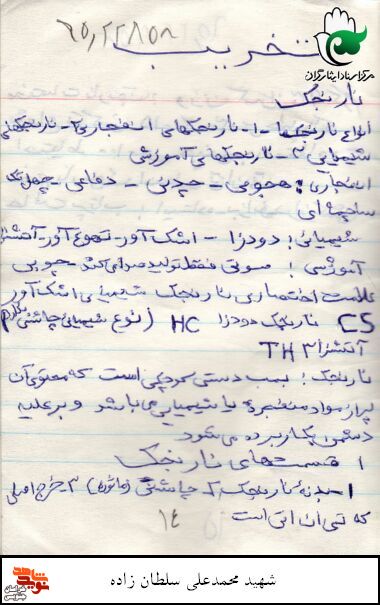 ۶۵,۲۲۸۵۸
تخریب
مرکز اسناد ایثارگران
نارنجک
انواع نارنجکها - ۱- نارنجکهای انفجاری ۲- نارنجکهای
شیمیایی ۳- نارنجکهای آموزشی
انفجاری: هجومی - جدنی - دفاعی - چهل تکه
ساچمه ای
شیمیائی: دودزا - اشک آور - تهوع آور - آتشزا
آموزشی: صوتی فقط تولید صدا می کند - چوبی
علامت اختصاری نارنجک شیمیایی اشک آور
CS نارنجک دودزا HC (نوع شیمیایی چاشنی
آتشزا TH۳
نارنجک: بمب دستی کوچکی است که محتوی آن
از مواد منفجره یا شیمیایی می باشد و بر علیه
دشمن بکار برده می شود
قسمتهای نارنجک
۱- بدنه نارنجک ۲- چاشنی (ماسوره) ۳- خرج اصلی
که تی ان تی است
۱۴
شهید محمدعلی سلطان زاده
نوید شاهد
خراسان جنوبی